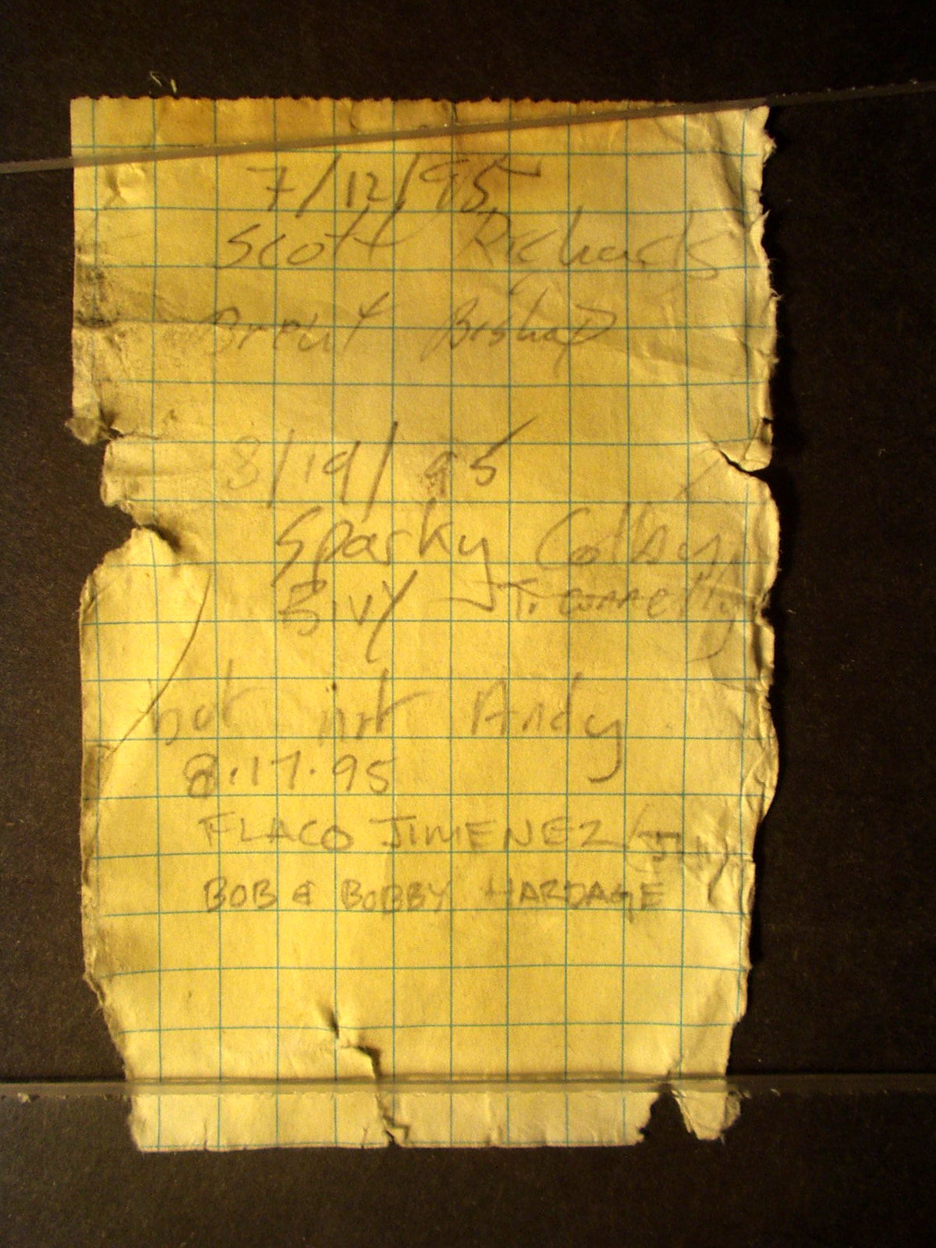 7/12/95
Scott Richards
Brent Bishop
8/19/95
Sparky Colby
J. Connelly
but not Andy
8.17.95
FLACO JIMENEZ
BOB & BOBBY HARDAGE